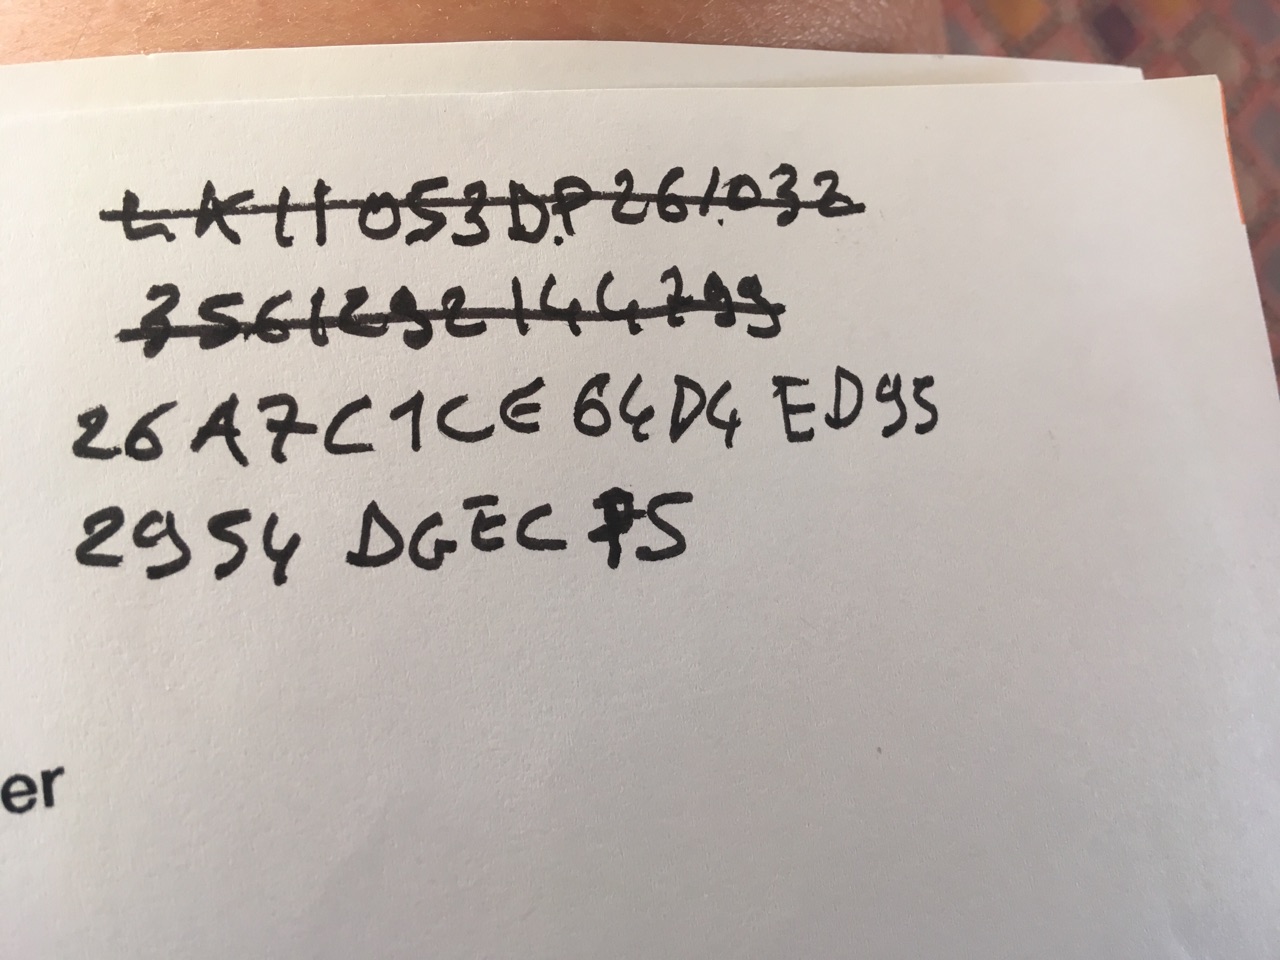 LKH053DP261032
3561292144799
26A7C1CE64D4ED95
2954DGEC75
er